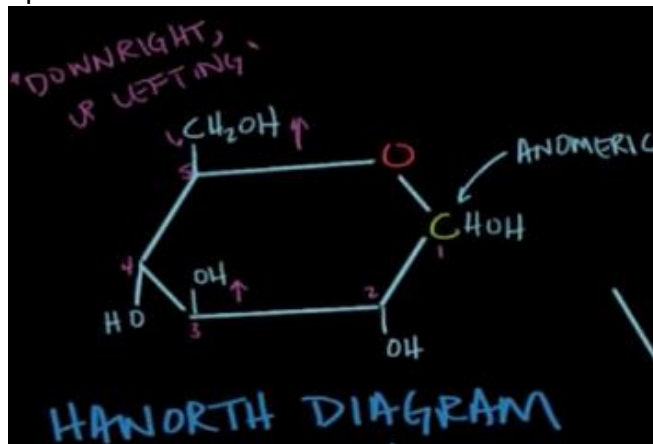 "DOWNRIGHT,
UP LEFTING"
6 CH₂OH ↑
5
O
ANOMERIC
CHOH
1
4
OH ↑
2
HO
3
OH
HAWORTH DIAGRAM